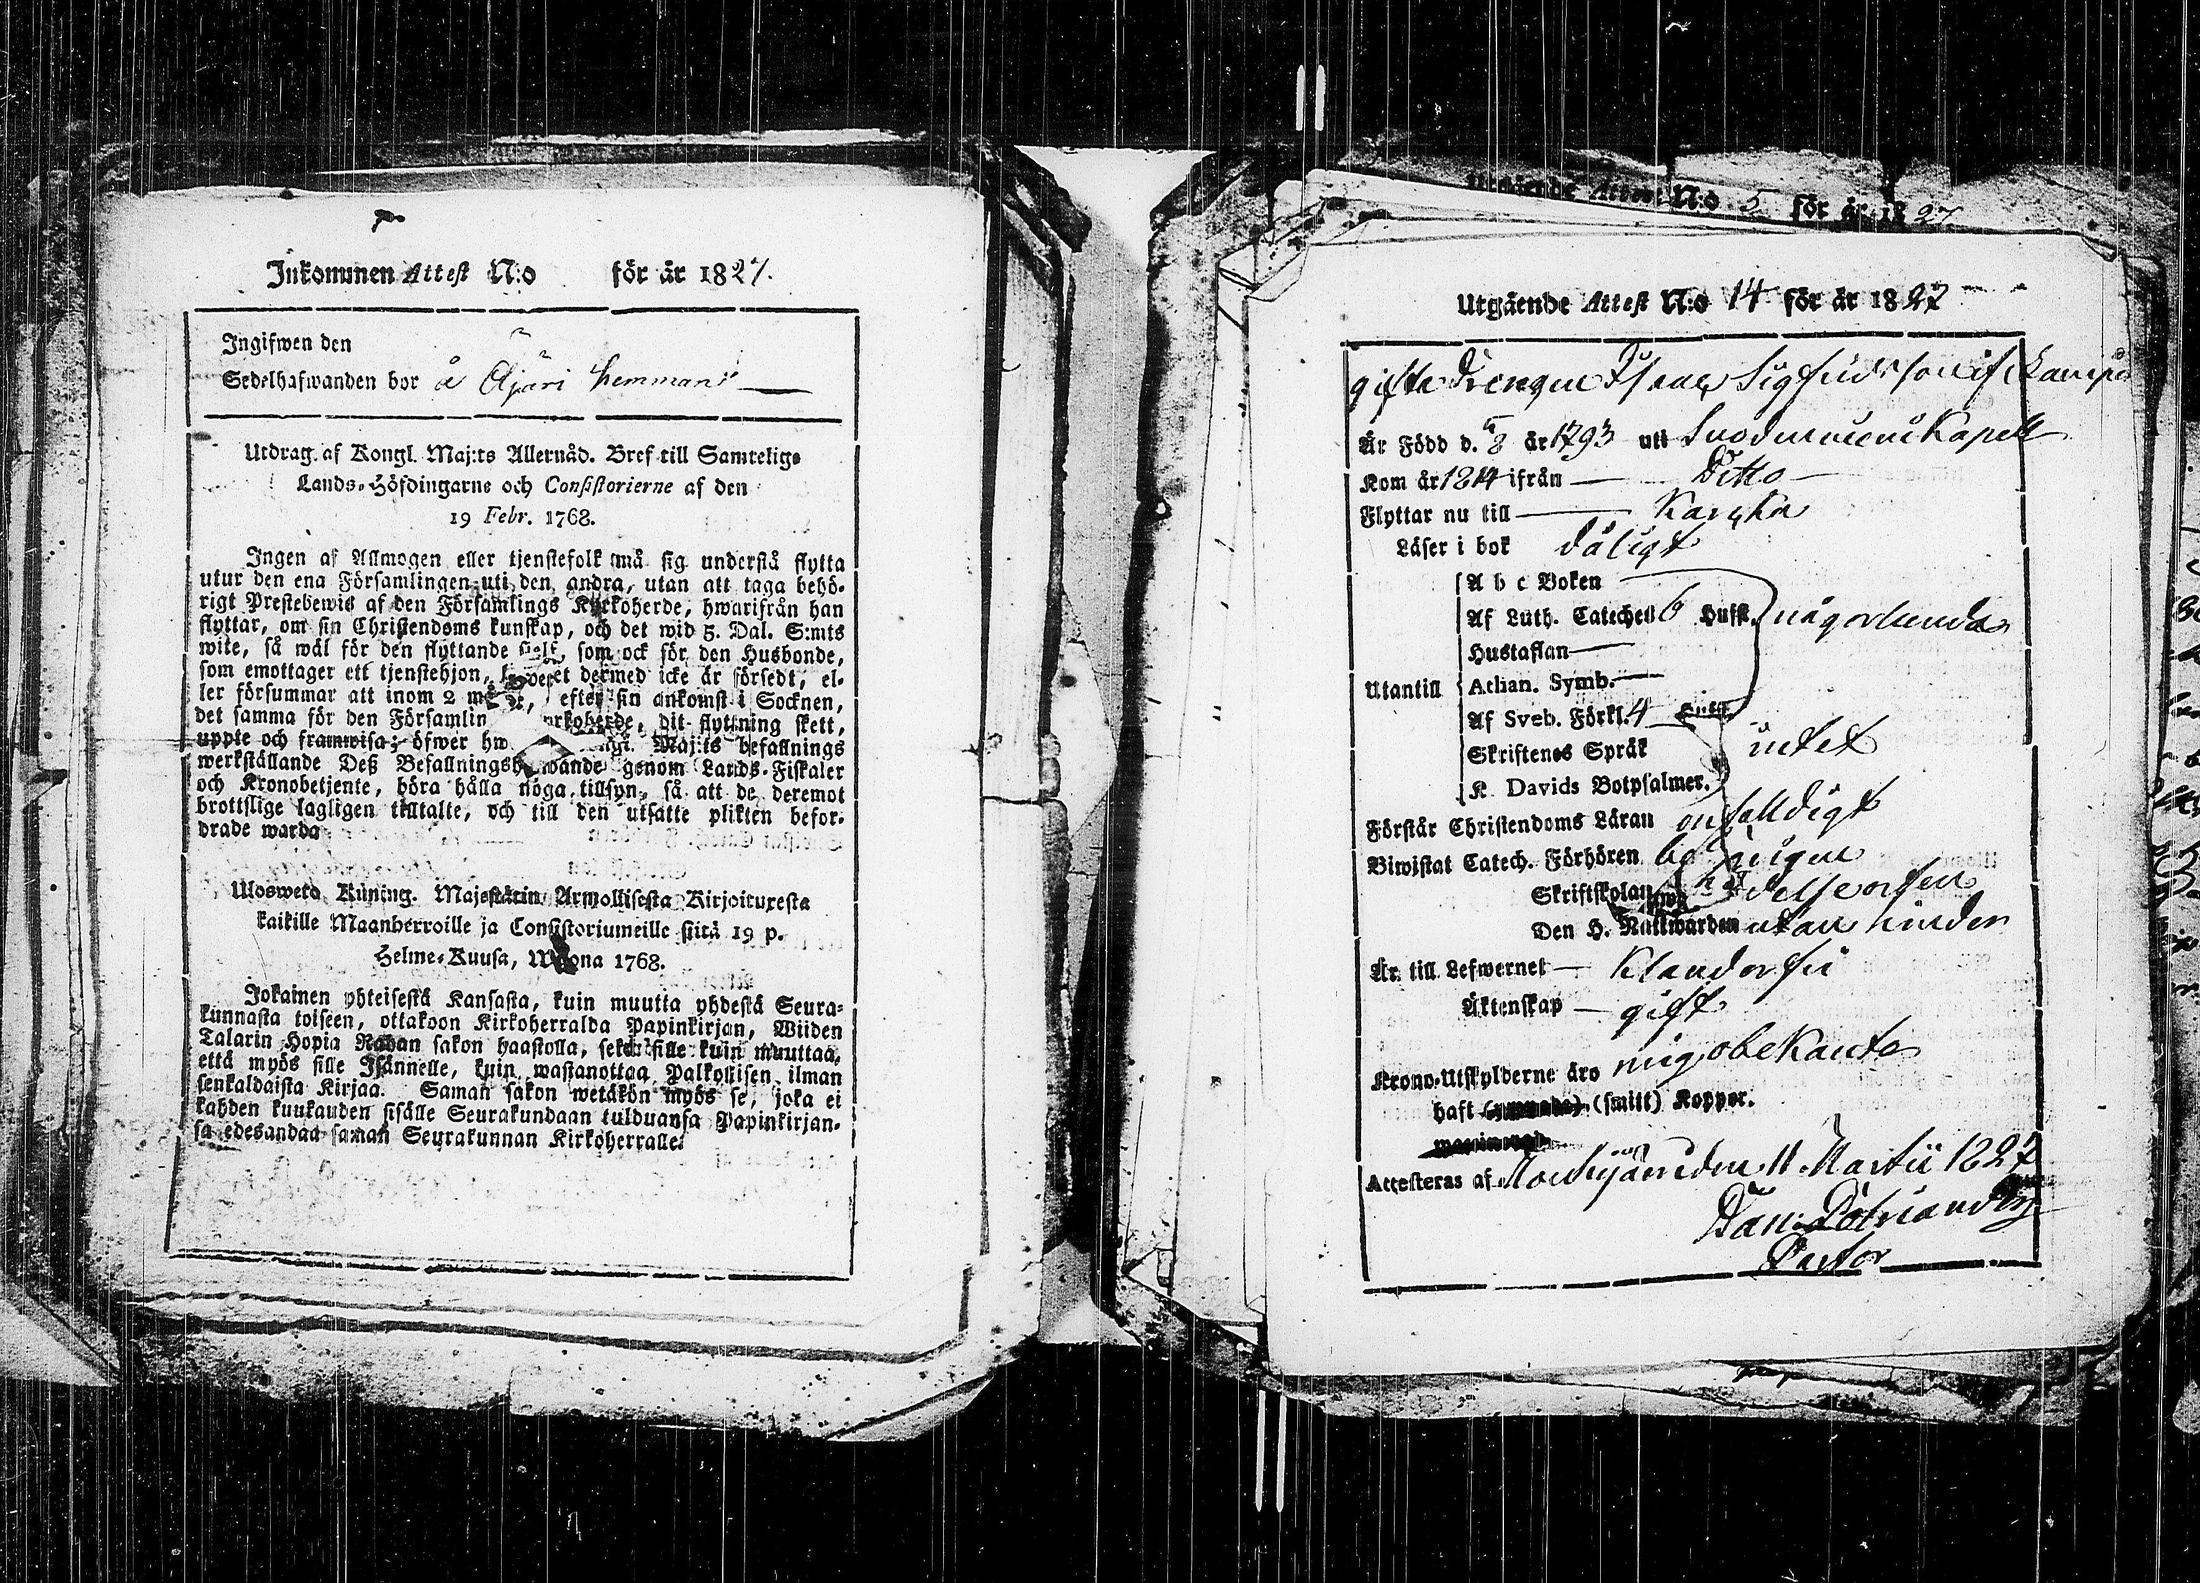 Inkommen Attest N:o för år 1827.
Ingifwen den
Sedelhafwanden bor å Äjäri hemman
Utdrag af Kongl. Maj:ts Allernåd. Bref till Samtelige
Lands-Höfdingarne och Consistorierne af den
19 Febr. 1768.
Ingen af Allmogen eller tjenstefolk må sig understå flytta
utur den ena Församlingen uti den andra, utan att taga behö-
rigt Prestebewis af den Församlings Kyrkoherde, hwarifrån han
flyttar, om sin Christendoms kunskap, och det wid 5. Dal. S:mts
wite, så wäl för den flyttande sielf, som ock för den Husbonde,
som emottager ett tjenstehjon, hwilket dermed icke är försedt, el-
ler försummar att inom 2 m efter sin ankomst i Socknen,
det samma för den Församlin rkoherde, dit flyttning skett,
uppte och framwisa; öfwer hw Maj:ts befallnings
werkställande Deß Befallningshafwande genom Lands-Fiskaler
och Kronobetjente, böra hålla nöga tillsyn, så att de deremot
brottslige lagligen tilltalte, och till den utsatte plikten befor-
drade warda
Uloswetd Kuning. Majestätin Armollisesta Kirjoituxesta
kaikille Maanherroille ja Consistoriumeille siitä 19 p.
Helme-Kuusa, Wuona 1768.
Jokainen yhteisestä Kansasta, kuin muutta yhdestä Seura-
kunnasta toiseen, ottakoon Kirkoherralda Papinkirjan, Wiiden
Talarin Hopia Rahan sakon haastolla, sekä sille kuin muuttaa,
että myös sille Isännelle, kuin wastanottaa Palkollisen ilman
senkaldaista Kirjaa. Saman sakon wetäkön myös se, joka ei
kahden kuukauden sisälle Seurakundaan tulduansa Papinkirjan-
sa edesandaa saman Seurakunnan Kirkoherralle.
Utgående Attest N:o 5 för år 1827
Utgående Attest N:o 14 för år 1827
gifta Drengen Isaac Sigfridsson if
Är Född d. 5/8 år 1793 uti Kapell
Kom år 1814 ifrån Ditto
Flyttar nu till Karkku
Läser i bok dåligt
A b c Boken
Af Luth. Cateches 6 Hufst. någorlunda
Hustaflan
Utantill Athan. Symb.
Af Sveb. Förkl. 4
Skriftenes Språk intet
K. Davids Botpsalmer.
Förstår Christendoms Läran enfalldigt
Biwistat Catech. Förhören
Skriftskolan
Den H. Nattwarden utan hinder
Är till Lefwernet Klanderfri
Äktenskap gift
Krono-Utskylderne äro mig obekante
haft (smitt) Koppor.
Attesteras af Mouhijärvi den 11 Martii 1827
Dan: Polviander
Pastor